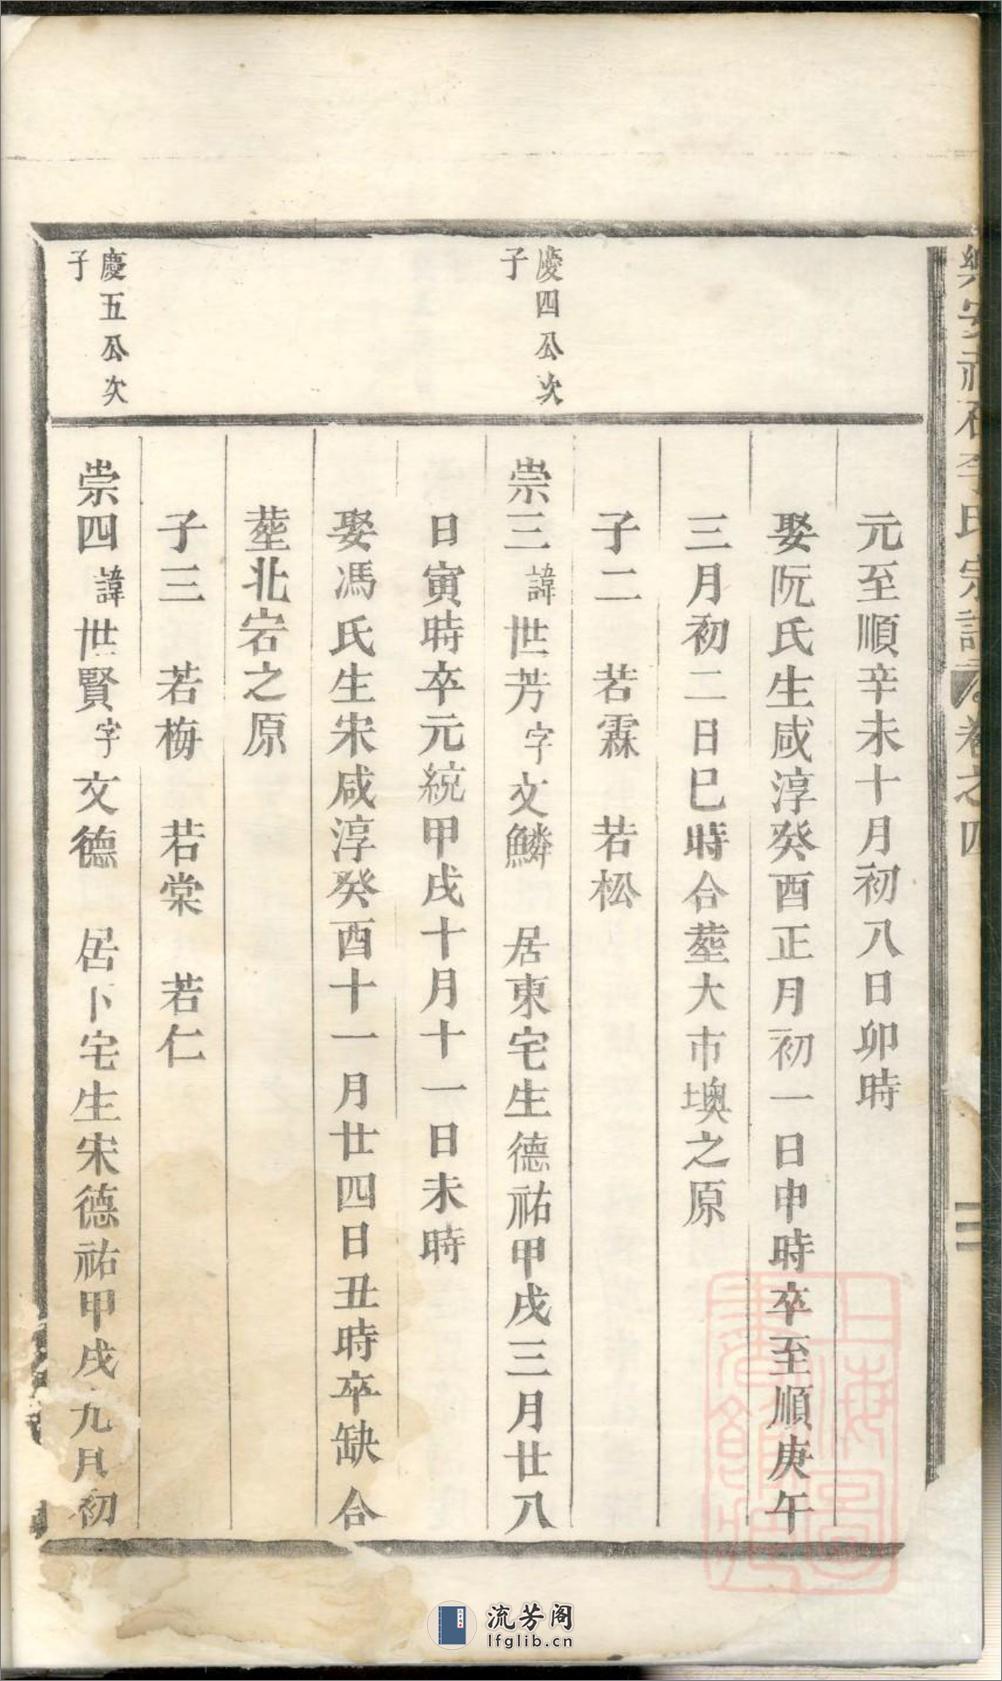 元至順辛未十月初八日卯時
娶阮氏生咸淳癸酉正月初一日申時卒至順庚午
三月初二日巳時合塟大市墺之原
子二　若霖　若松
慶四公次
子
崇三諱世芳字文鱗　居東宅生德祐甲戌三月廿八
日寅時卒元統甲戌十月十一日未時
娶馮氏生宋咸淳癸酉十一月廿四日丑時卒缺合
塟北宕之原
子三　若梅　若棠　若仁
慶五公次
子
崇四諱世賢字文德　居卜宅生宋德祐甲戌九月初
上海圖書館藏
流芳阁
lfglib.cn